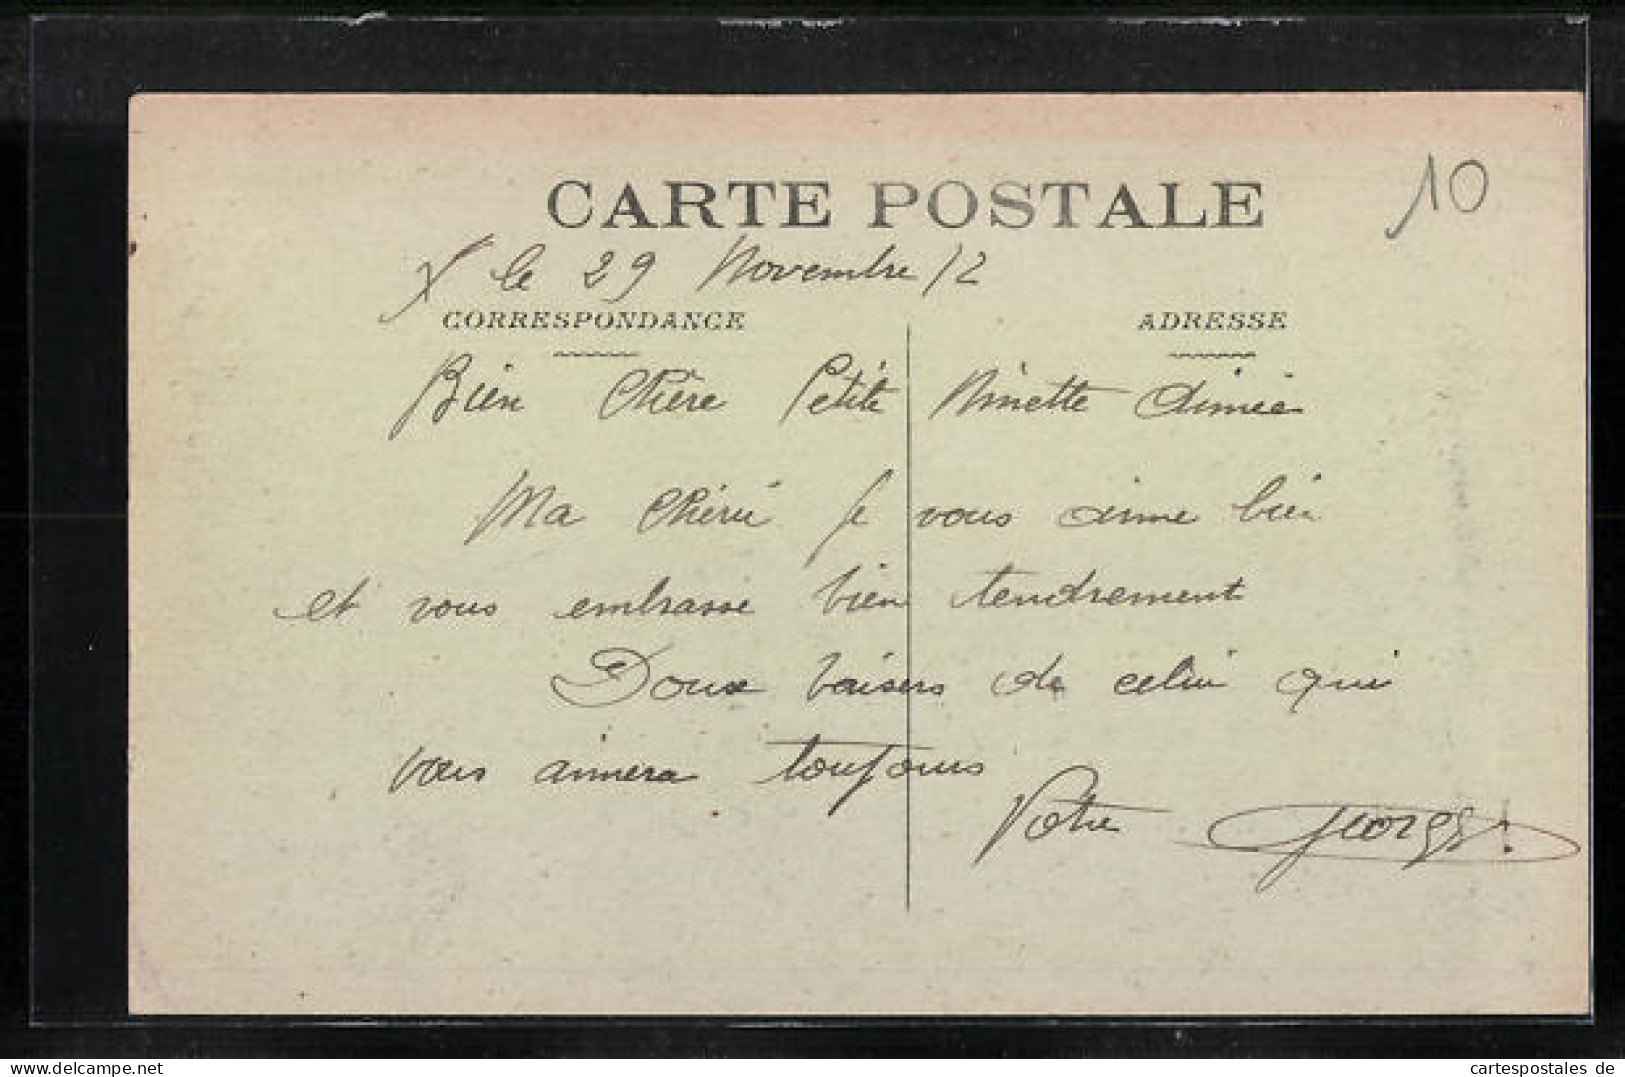 CARTE POSTALE
10
X le 29 Novembre 12
CORRESPONDANCE
ADRESSE
Bien Chère Petite Ninette Aimée
Ma Chérie je vous aime bien
et vous embrasse bien tendrement
Doux baisers de celui qui
vous aimera toujours
Votre Georges!
cartespostales de